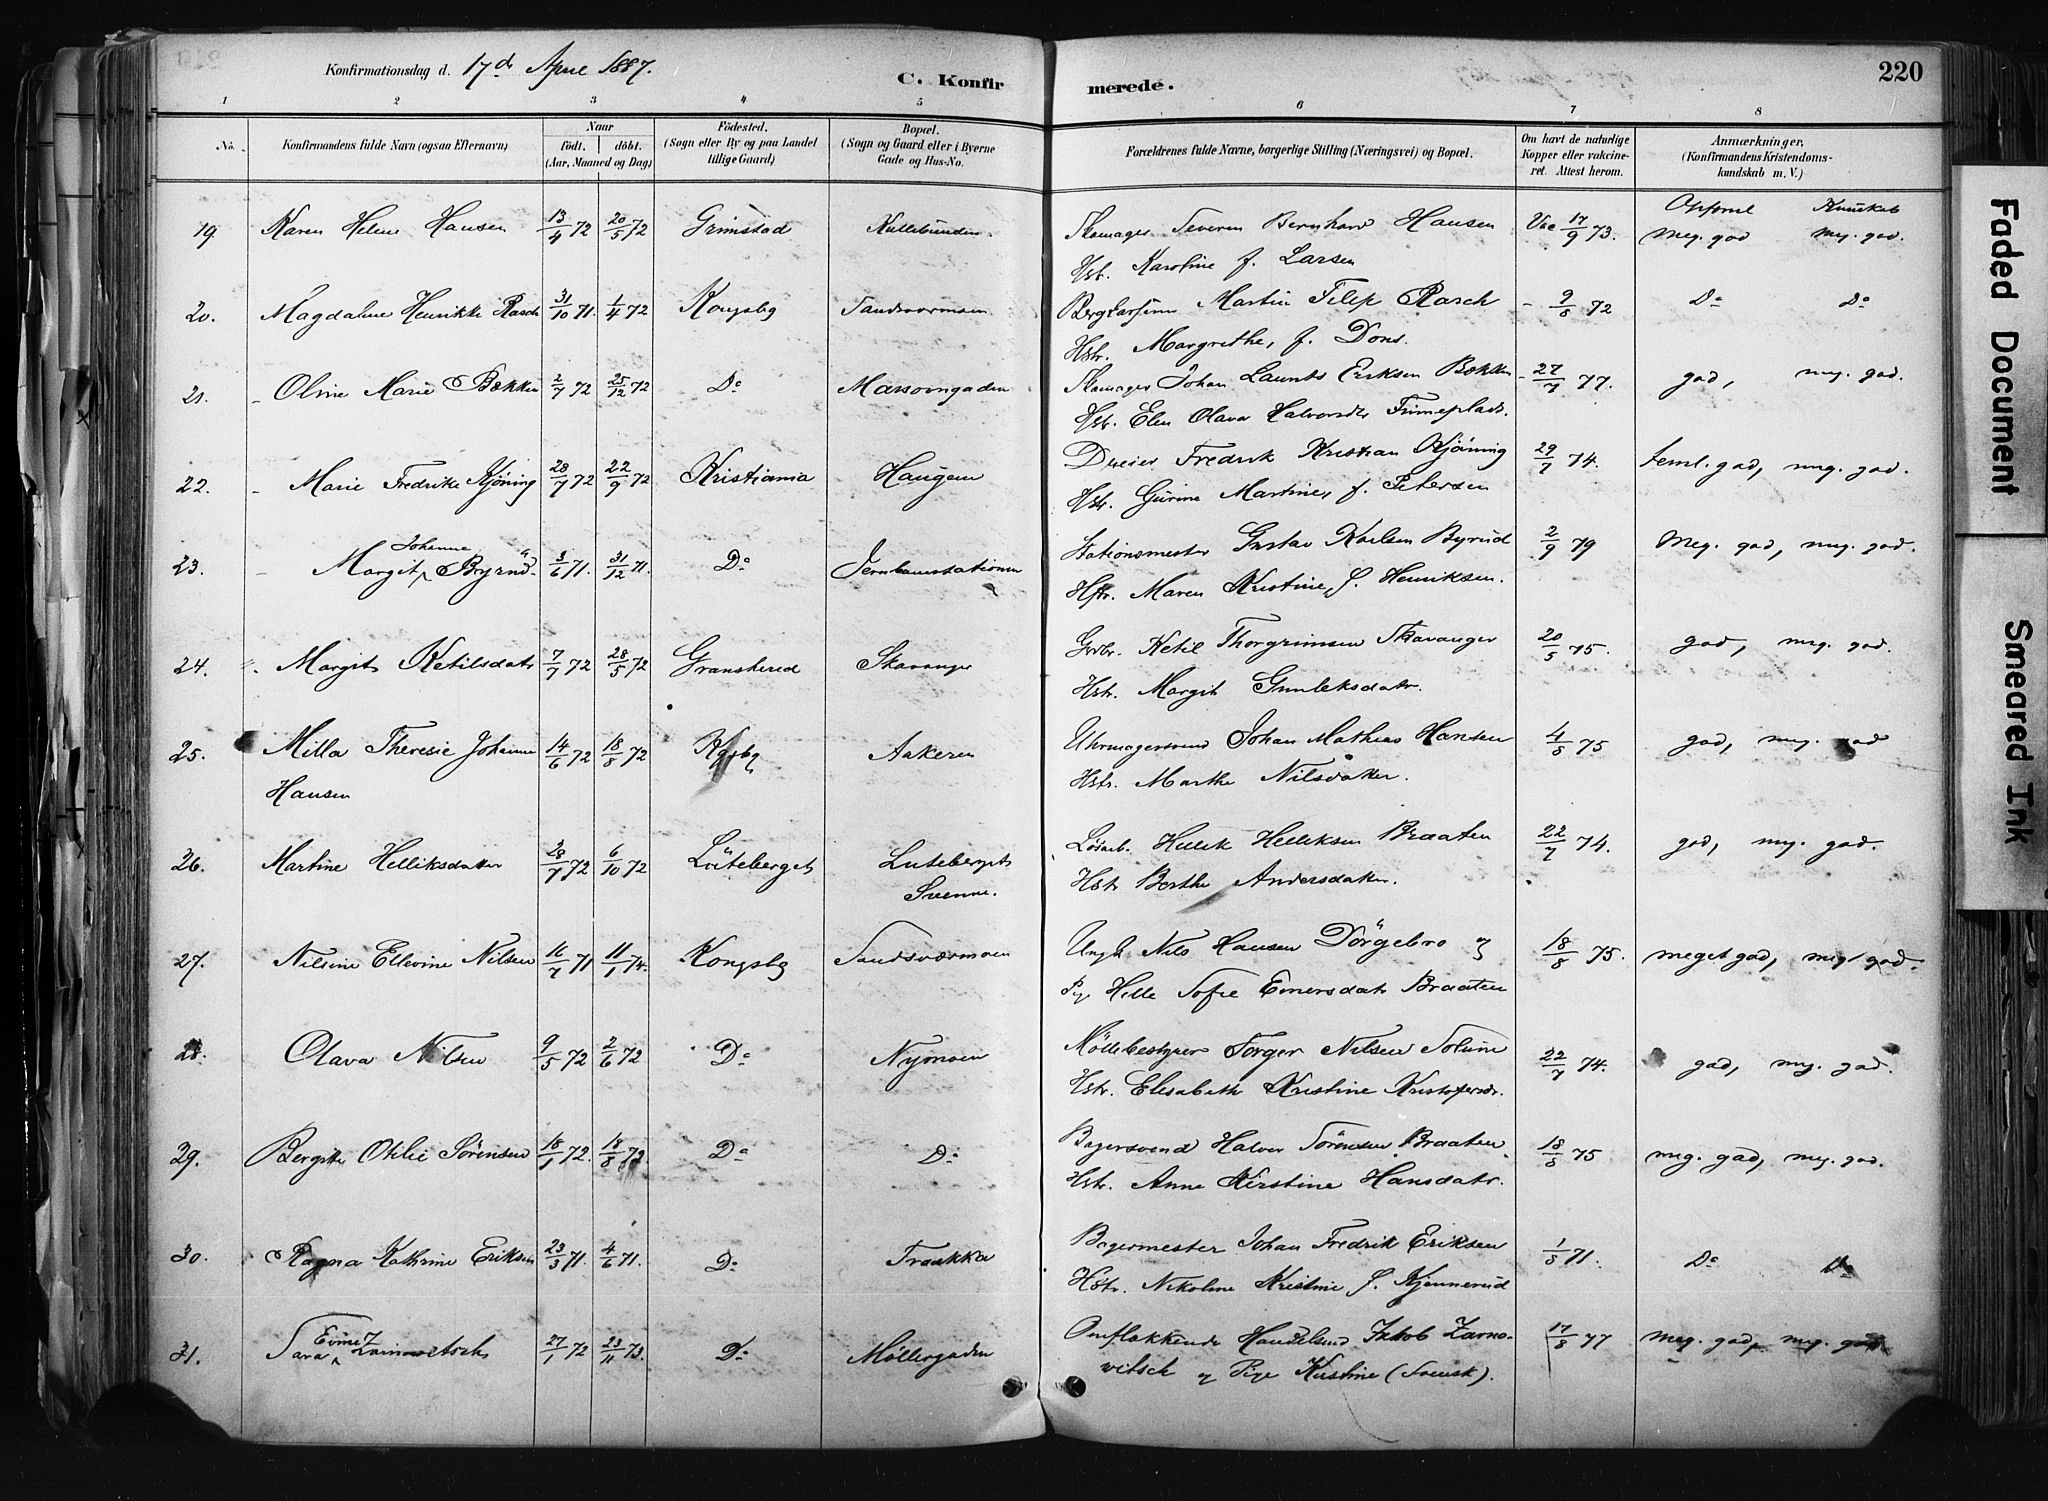 Konfirmationsdag d. 17de April 1887.
C. Konfirmerede.
220
1 2 3 4 5 6 7 8
No. Konfirmandens fulde Navn (ogsaa Efternavn) Naar födt. döbt. (Aar, Maaned og Dag) Födested. (Sogn eller By og paa Landet tillige Gaard) Bopæl. (Sogn og Gaard eller i Byerne Gade og Hus-No. Forældrenes fulde Navne, borgerlige Stilling (Næringsvei) og Bopæl. Om havt de naturlige Kopper eller vakcineret. Attest herom. Anmærkninger. (Konfirmandens Kristendomskundskab m. V.)
Opförsel Kundskab
19. Karen Helene Hansen 13/4 72 20/5 72 Grimstad Skomager Severin Bernhard Hansen Vac 17/9 73. Meg. god meg. god.
Hstr. Karoline f. Larsen
20. Magdalene Henrikke Rasch 31/10 71. 1/4 72 Kongsbg Sandsværmoen Martin Filip Rasch - 9/8 72 Do Do
Hstr. Margrethe, f. Dons.
21. - Oline Marie Bækken 2/7 72 25/12 72 Do Massovngaden Skomager Johan Laurits Eriksen Bækken - 27/7 77. god, meg. god.
Hstr. Elen Olava Halvorsdtr
22. - Marie Fredrikke Kjöning 28/7 72 22/9 72 Kristiania Haugen Dreier Fredrik Kristian Kjöning 29/7 74. teml. god, meg. god.
Hstr. Gurine Martine, f. Petersen
23. - Margit Johanne Byrud 3/6 71. 31/12 71. Do Jernbanestationen Stationsmester Gustav Karlsen Byrud 2/9 79 Meg. god, meg. god.
Hstr. Maren Kristine, f. Henriksen.
24. - Margit Ketilsdatr 7/7 72 28/5 72 Gransherred Skavanger Grbr. Ketil Thorgrimsen Skavanger 20/5 75. god, meg. god.
Hstr. Margit Gunleksdatr.
25. Milla Theresie Johanne 14/6 72 18/8 72 Kgsbg Aakeren Uhrmagersvend Johan Mathias Hansen 4/8 75 god, meg. god
Hansen Hstr. Marthe Nilsdatter.
26. Martine Helliksdatter 6/10 72 Luteberget Luteberget Løsarb. Hellik Helliksen Braaten 22/7 74. god, meg. god.
Svenne. Hstr Berthe Andersdatter.
27. Nilsine Ellevine Nilsen 16/7 71 11/1 74. Kongsbg Sandsværmoen Ungk Nils Hansen Dörgebro og 18/8 75. meget god, meget god.
Pige Helle Sofie Einersdatr Braaten
28. Olava Nilsen 9/5 72 2/6 72 Do Nymoen Möllebestyrer Torger Nilsen Solum 22/7 74. god, meg. god.
Hstr. Elisabeth Kristine Kristofersdr.
29. Bergitte Otilie Sörensen 18/1 72. 18/8 72 Do Do Bagersvend Halvor Sörensen Braaten 18/8 75 meg. god, meg. god.
Hstr. Anne Kirstine Hansdatr.
30. Ragna Kathrine Eriksen 23/3 71. 4/6 71. Do Traakka Bagermester Johan Fredrik Eriksen 1/8 71. Do Do
Hstr. Nikoline Kristine f. Kjennerud
31. Sara Zarnowetsch 27/1 72 23/11 73. Do Møllergaden Omflakkende Handelsmd Jakob Zarnowitsch 17/8 77 Meg. god, meg. god
og Pige Kristine (Svensk).
Faded Document
Smeared Ink